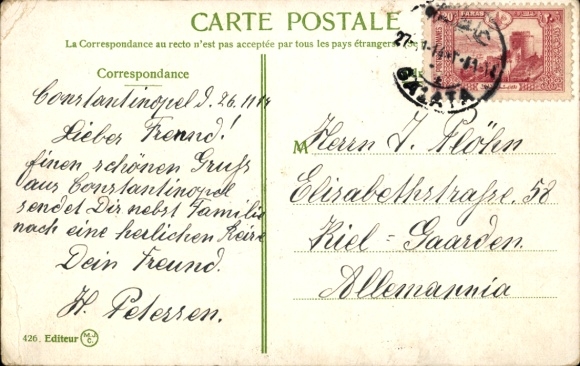 CARTE POSTALE
La Correspondance au recto n'est pas acceptée par tous les pays étrangers
Correspondance
Constantinopel d. 26.
Lieber Freund!
einen schönen Gruss
aus Constantinopel
sendet Dir nebst Familie
nach eine herlichen Reise
Dein Freund.
H. Petersen.
426. Editeur M.J.C.
20 PARAS
GALATA
M Herrn J. Plöhn
Elisabethstrasse. 58
Kiel = Gaarden.
Allemannia